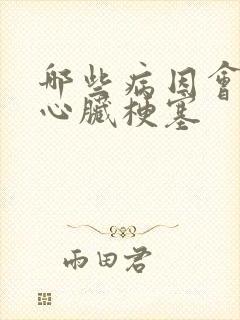 哪些病因會
心臟梗塞
雨田君